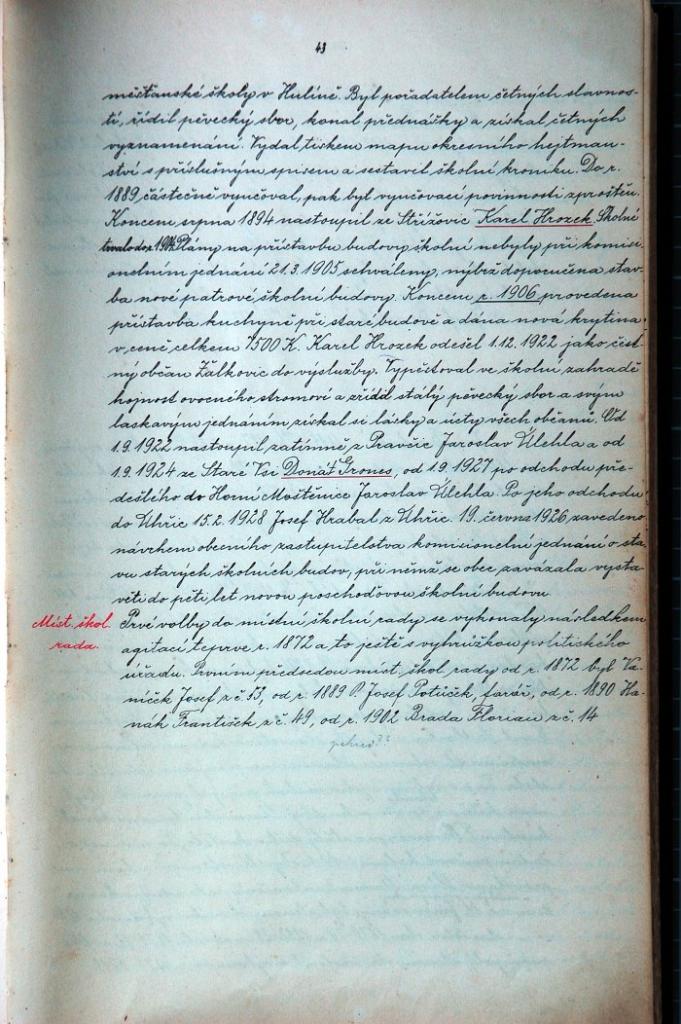 43
měšťanské školy v Hulíně. Byl pořadatelem četných slavnos-
tí, řídil pěvecký sbor, konal přednášky a získal četných
vyznamenání. Vydal tiskem mapu okresního hejtman-
ství s příslušným spisem a sestavil školní kroniku. Do r.
1889 částečně vyučoval, pak byl vyučovací povinnosti zproštěn.
Koncem srpna 1894 nastoupil ze Střížovic Karel Hrozek. Školné
trvalo do r. 1904. Plány na přístavbu budovy školní nebyly při komisi-
onelním jednání 21.3.1905 schváleny, nýbrž doporučena stav-
ba nové patrové školní budovy. Koncem r. 1906 provedena
přístavba kuchyně při staré budově a dána nová krytina
v ceně celkem 7500 K. Karel Hrozek odešel 1.12.1922 jako čest-
ný občan Žalkovic do výslužby. Vypěstoval ve školní zahradě
hojnost ovocného stromoví a zřídil stálý pěvecký sbor a svým
laskavým jednáním získal si lásky a úcty všech občanů. Od
1.9.1922 nastoupil zatímně z Pravčic Jaroslav Úlehla a od
1.9.1924 ze Staré Vsi Donát Grones, od 1.9.1927 po odchodu pře-
dešlého do Horní Moštěnice Jaroslav Úlehla. Po jeho odchodu
do Uhřic 15.2.1928 Josef Hrabal z Uhřic. 19. června 1926 zavedeno
návrhem obecního zastupitelstva komisionelní jednání o sta-
vu starých školních budov, při němž se obec zavázala vysta-
věti do pěti let novou poschoďovou školní budovu.
Míst. škol.
rada.
Prvé volby do místní školní rady se vykonaly následkem
agitací teprve r. 1872 a to ještě s vyhrůžkou politického
úřadu. Prvním předsedou míst. škol. rady od r. 1872 byl Va-
níček Josef z č. 53, od r. 1889 P. Josef Potůček, farář, od r. 1890 Ha-
nák František z č. 49, od r. 1902 Brada Florian z č. 14